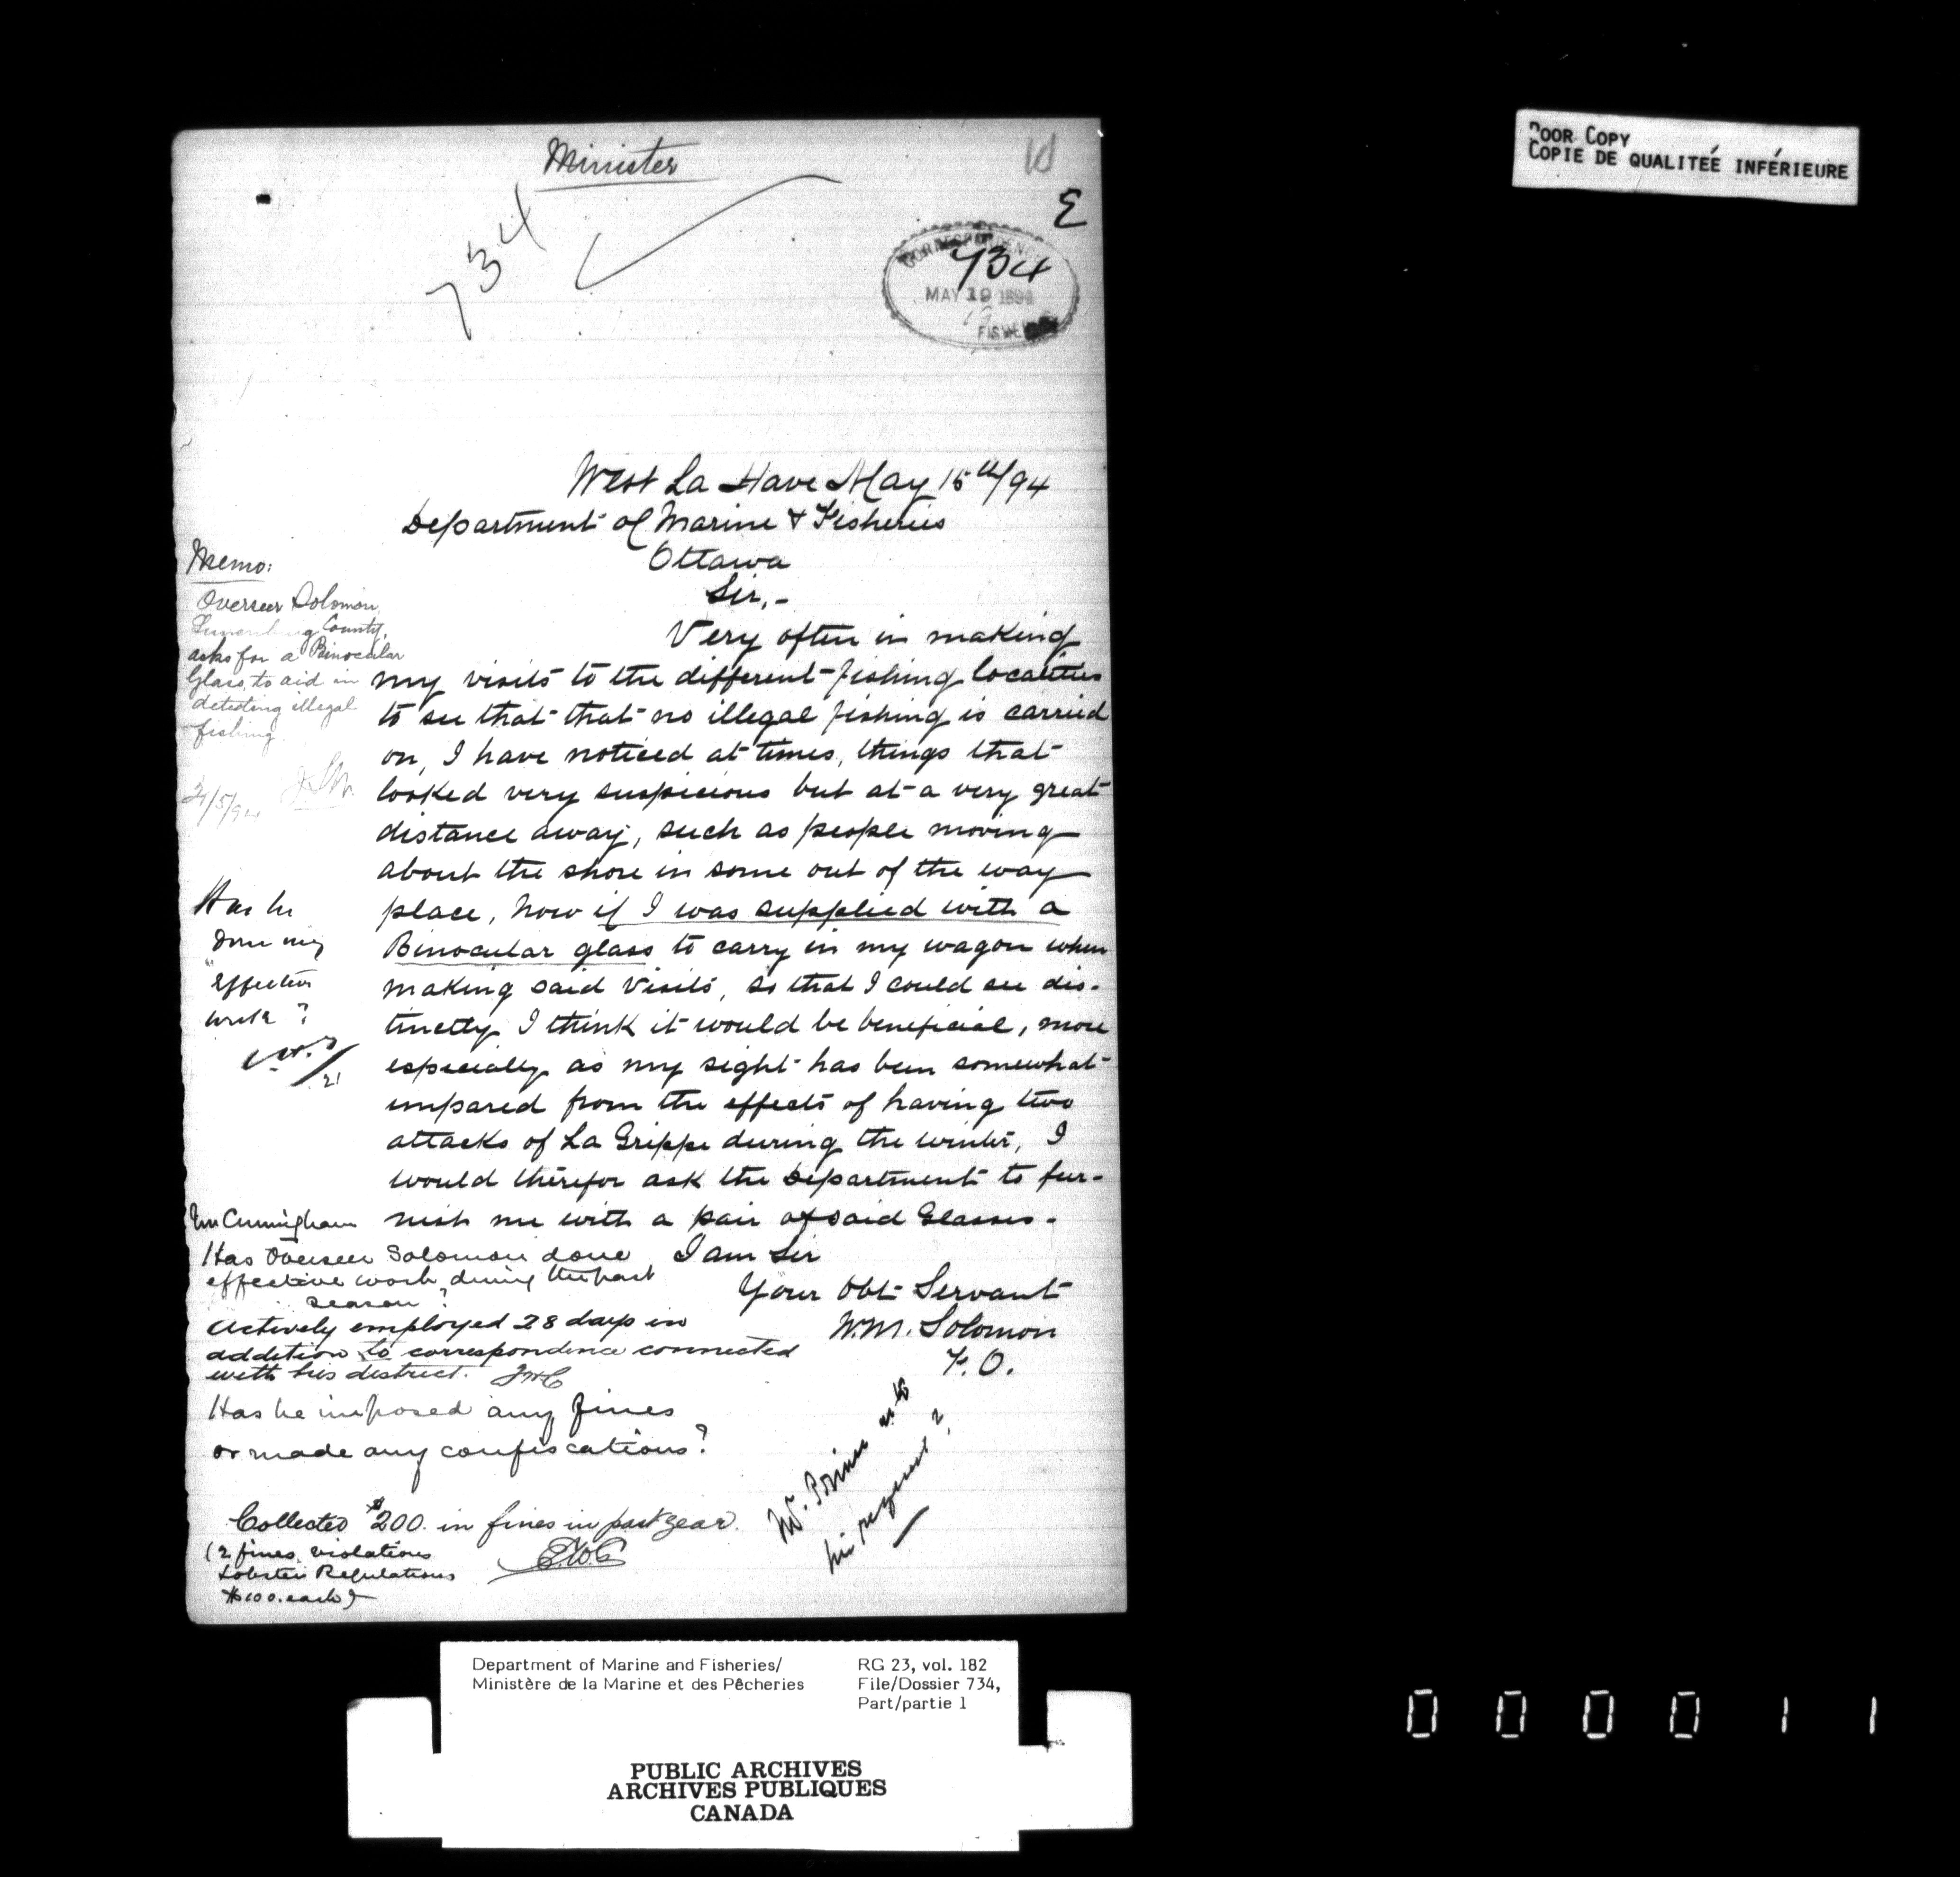 Minister
734
E
CORRESPONDENCE
734
MAY 19 1894
FISHERIES
POOR COPY
COPIE DE QUALITEÉ INFÉRIEURE
West La Have May 15th/94
Department of Marine & Fisheries
Ottawa
Sir,-
Very often in making
my visits to the different fishing localities
to see that that no illegal fishing is carried
on, I have noticed at times, things that
looked very suspicious but at a very great
distance away, such as people moving
about the shore in some out of the way
place, now if I was supplied with a
Binocular glass to carry in my wagon when
making said visits, so that I could see dis-
tinctly I think it would be beneficial, more
especially as my sight has been somewhat
impared from the effects of having two
attacks of La Grippe during the winter, I
would therefor ask the Department to fur-
nish me with a pair of said Glasses.
I am Sir
Your Obt Servant
W.M. Solomon
F.O.
Memo:
Overseer Solomon,
Lunenburg County,
asks for a Binocular
Glass, to aid in
detecting illegal
fishing.
21/5/94
Has he
done any
effective
work?
21
Mr Cunningham
Has Overseer Solomon done
effective work during the past
season?
Actively employed 28 days in
addition to correspondence connected
with his district. FWC
Has he imposed any fines
or made any confiscations?
Collected $200. in fines in past year.
(2 fines, violations
Lobster Regulations
$100. each)
Mr. Prince as to
his request?
Department of Marine and Fisheries/
Ministère de la Marine et des Pêcheries
RG 23, vol. 182
File/Dossier 734,
Part/partie 1
PUBLIC ARCHIVES
ARCHIVES PUBLIQUES
CANADA
000011